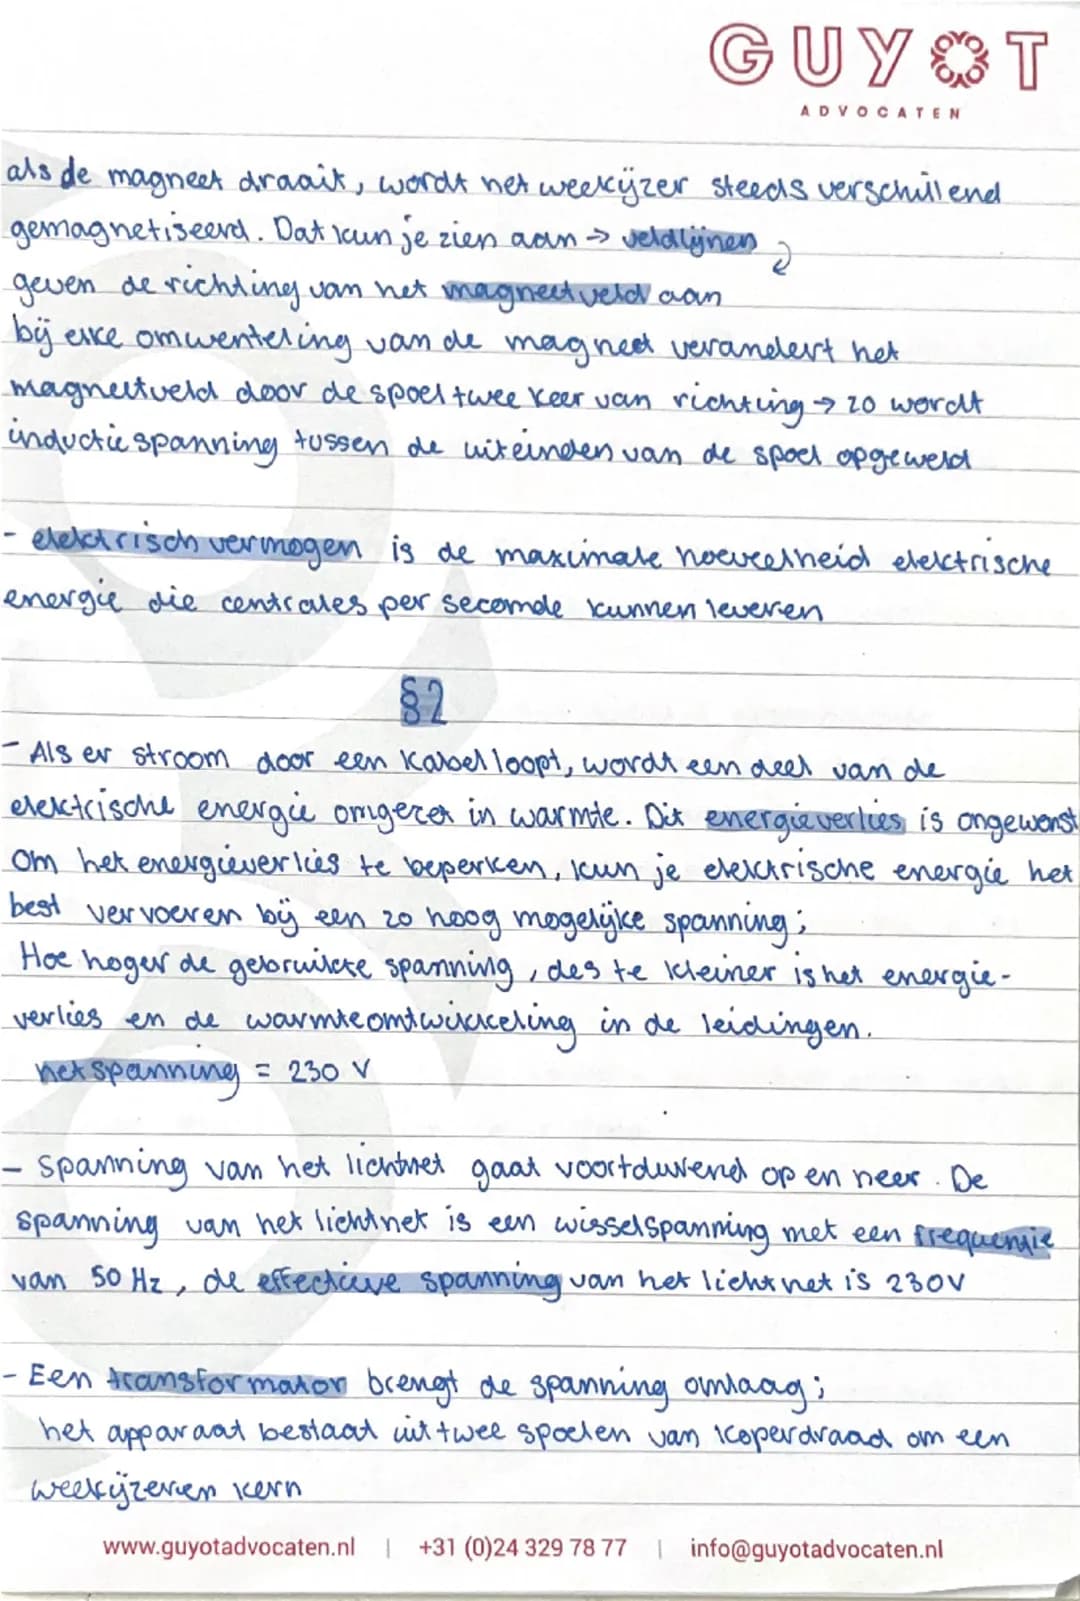 GUYOT
ADVOCATEN
als de magneet draait, wordt het weekijzer steeds verschillend
gemagnetiseerd. Dat kun je zien aan → veldlijnen
geven de richting van het magneetveld aan
bij elke omwenteling van de magneet verandert het
magneetveld door de spoel twee keer van richting → zo wordt
inductiespanning tussen de uiteinden van de spoel opgewekt
- elektrisch vermogen is de maximale hoeveelheid elektrische
energie die centrales per seconde kunnen leveren
§2
- Als er stroom door een kabel loopt, wordt een deel van de
elektrische energie omgezet in warmte. Dit energieverlies is ongewenst
om het energieverlies te beperken, kun je elektrische energie het
best vervoeren bij een zo hoog mogelijke spanning;
Hoe hoger de gebruikte spanning, des te kleiner is het energie-
verlies en de warmteontwikkeling in de leidingen.
netspanning = 230 V
- spanning van het lichtnet gaat voortdurend op en neer. De
spanning van het lichtnet is een wisselspanning met een frequentie
van 50 Hz, de effectieve spanning van het lichtnet is 230V
- Een transformator brengt de spanning omlaag;
het apparaat bestaat uit twee spoelen van koperdraad om een
weekijzeren kern
www.guyotadvocaten.nl | +31 (0)24 329 78 77 | info@guyotadvocaten.nl